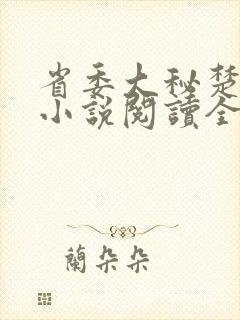 省委大秘楚
小說閱讀全
蘭朵朵